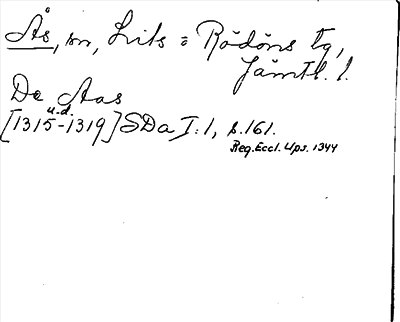 Ås, sn, Lits o Rödöns tg,
Jämtl. l.
De Aas
u.d.
[1315-1319] SDa I:1, s. 161.
Reg. Eccl. Ups. 1344